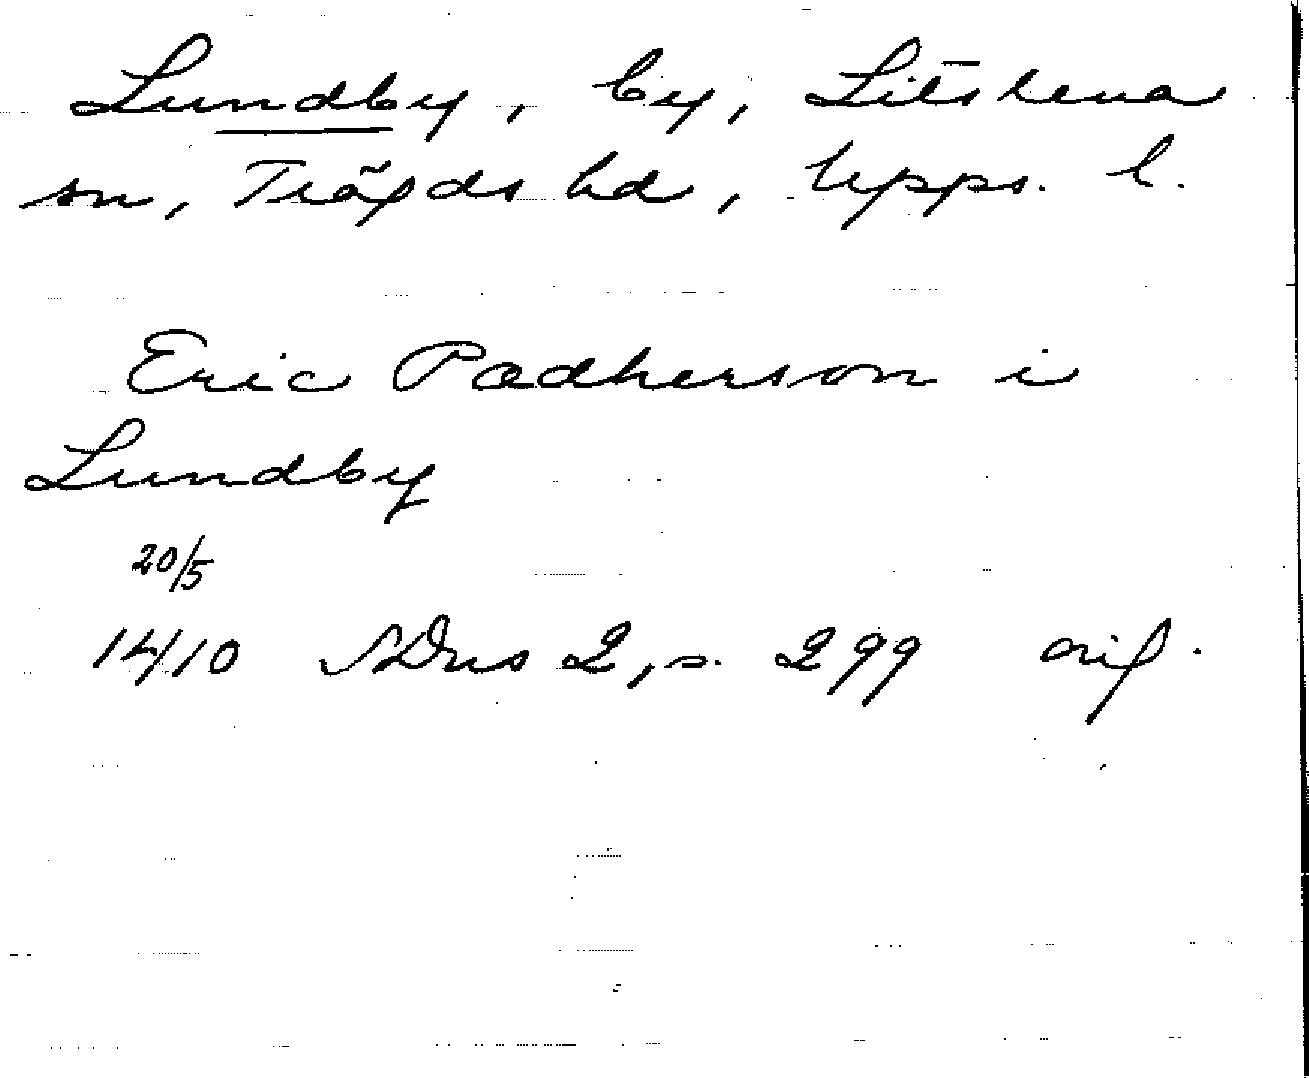 Lundby, by, Litslena
sn, Trögds hd, Upps. l.
Eric Padherson i
Lundby
20/5
1410 SDns 2, s. 299 orig.